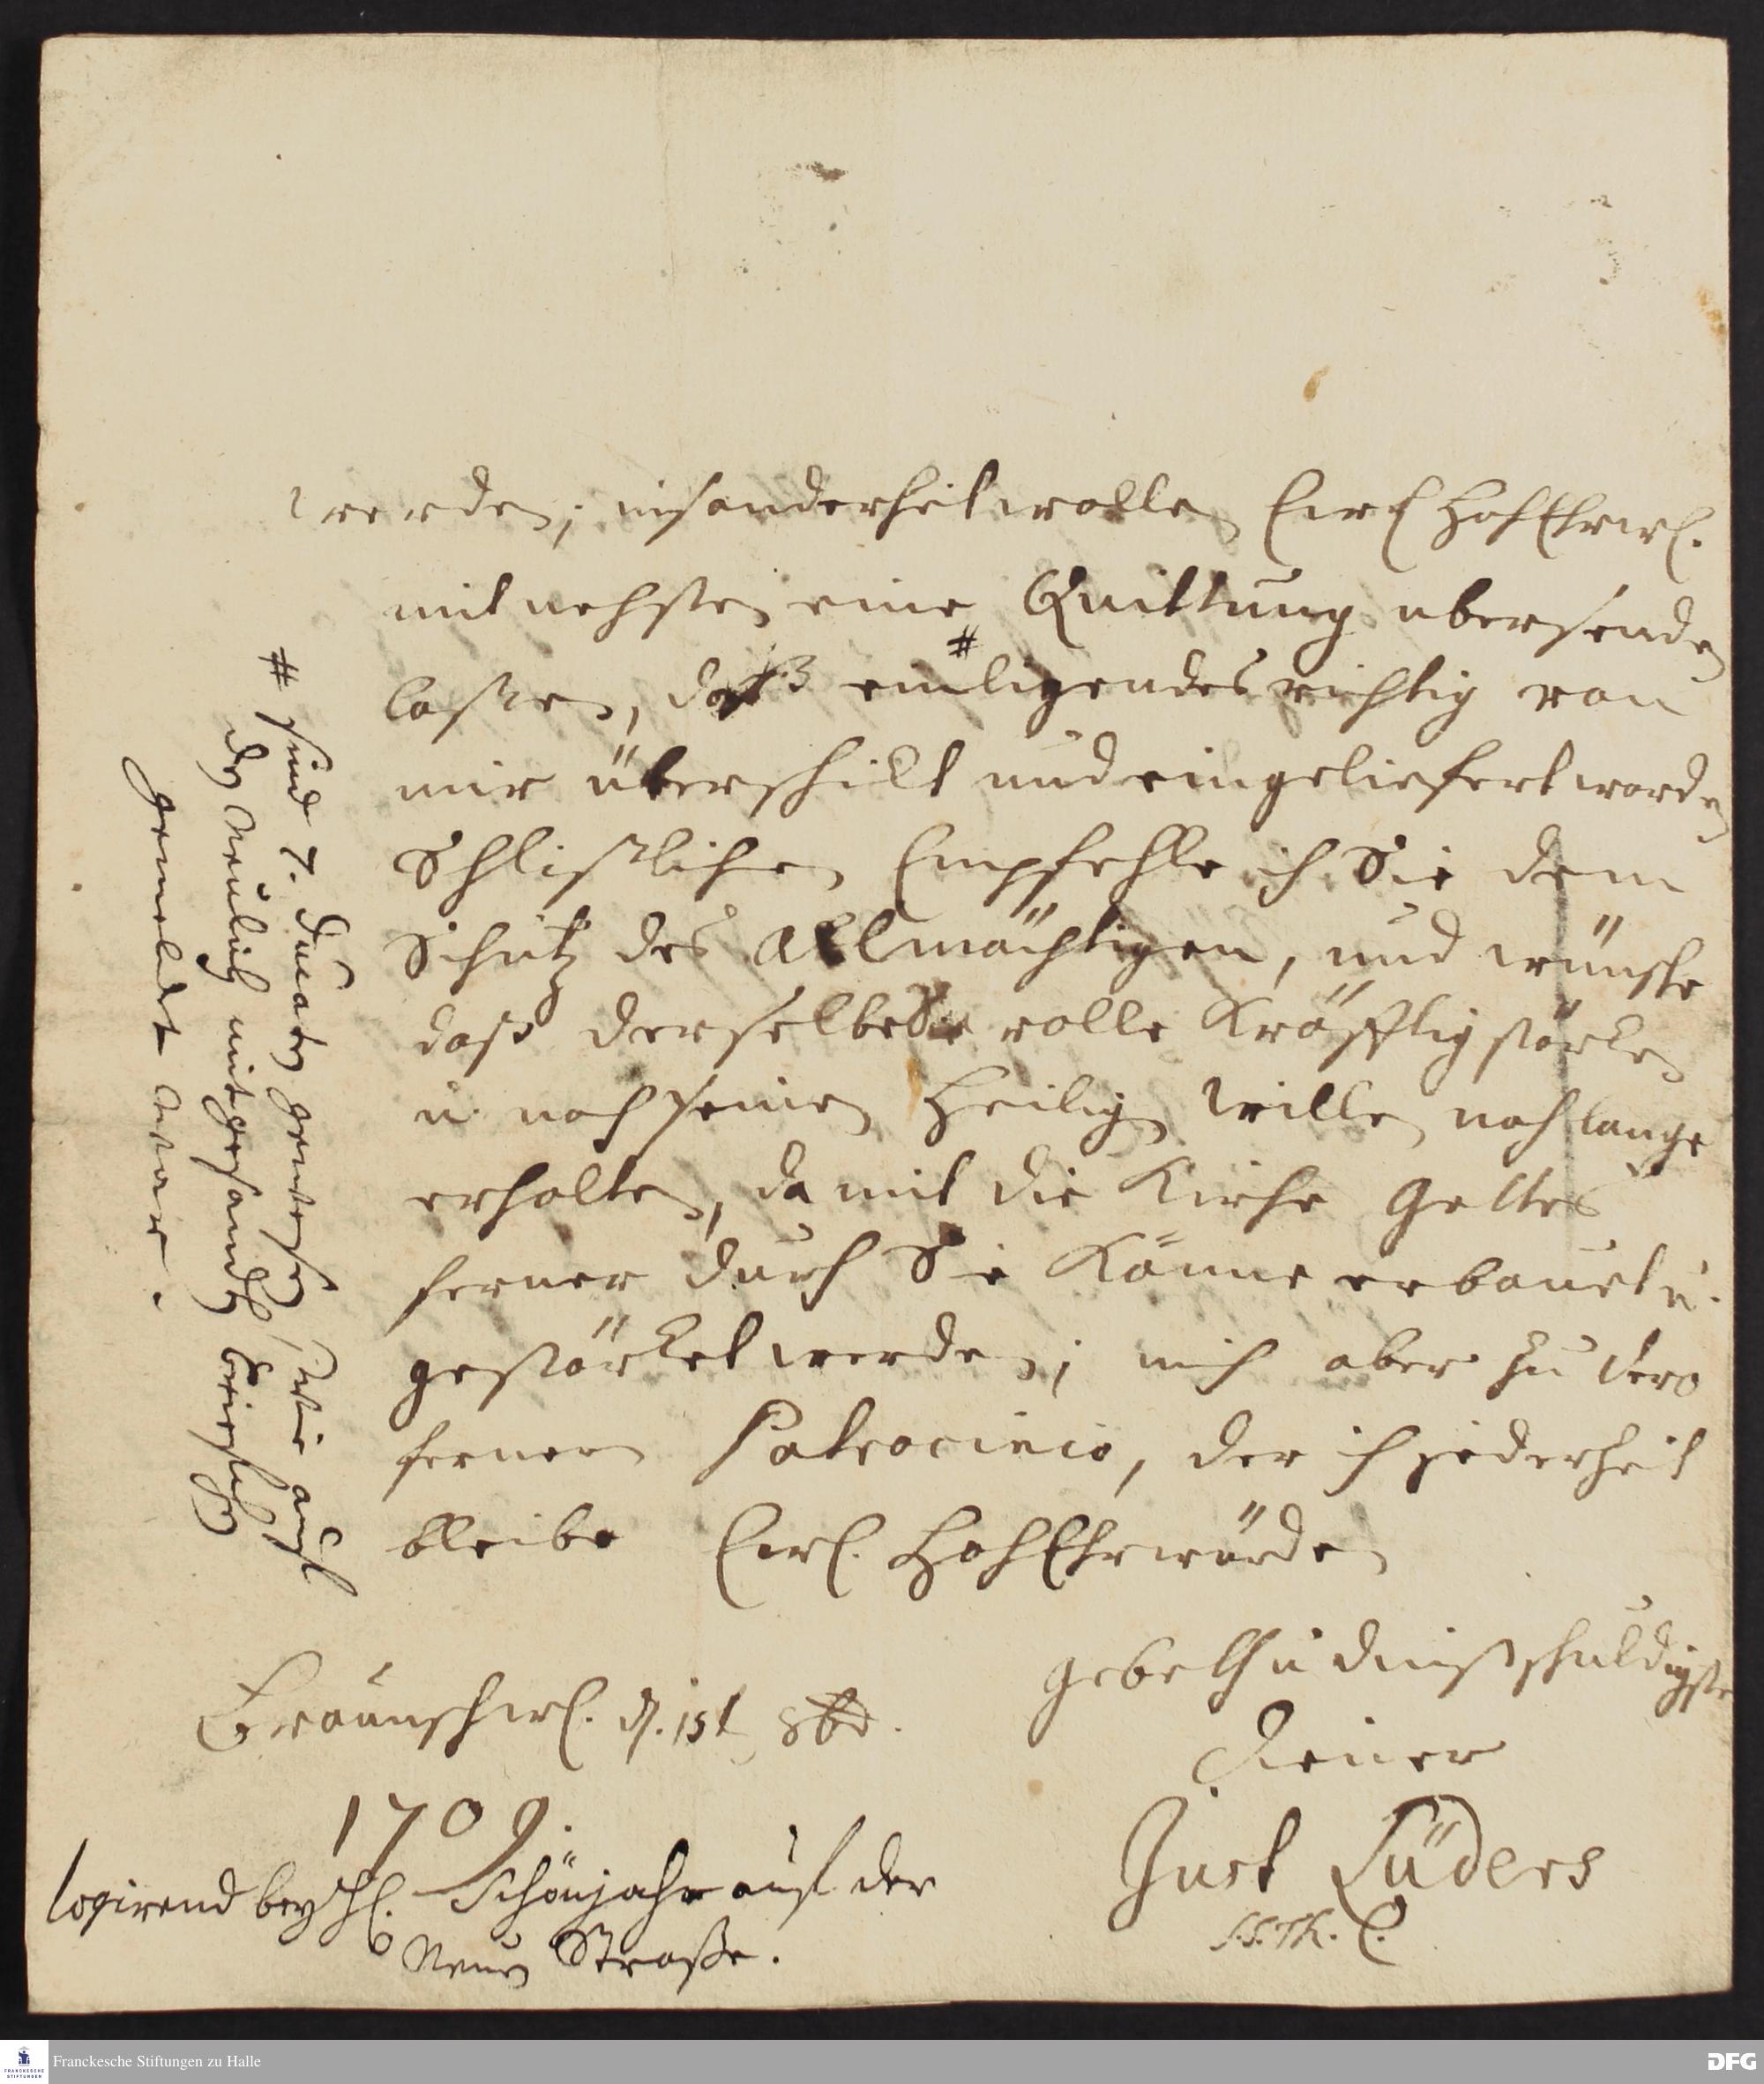 werden; insonderheit wollen Ewrl HochEhrwl.
mit nehsten eine Quittung ubersenden
lassen, daß # einligendes richtig von
mir überschikt und eingeliefert worden
Schlißlichen Empfehle ich Sie dem
Schutz des Allmächtigen, und wünsche
daß derselbe Sie wolle Kräfftig stärken
u. nach seinen Heilign Willen noch lange
erhalten, damit die Kirche Gottes
ferner durch Sie Könne erbauet u.
gestärket werden; mich aber zu dero
fernern Patrocinio, der ich jederzeit
bleibe Ewrl. HochEhrwürden
gebeth u dinstschuldigster
Diener
Just Lüders
S.S.Th. C.
Braunschwl. d. 1st 8br.
1709.
logirend bey Hl. Schönjahr auf der
Neuen Straße.
# sind 7. Ducaten gewesen, wie auch
den neulich mitgesandten brieflichen
gemeldet war.
Franckesche Stiftungen zu Halle
FRANCKESCHE
STIFTUNGEN
DFG